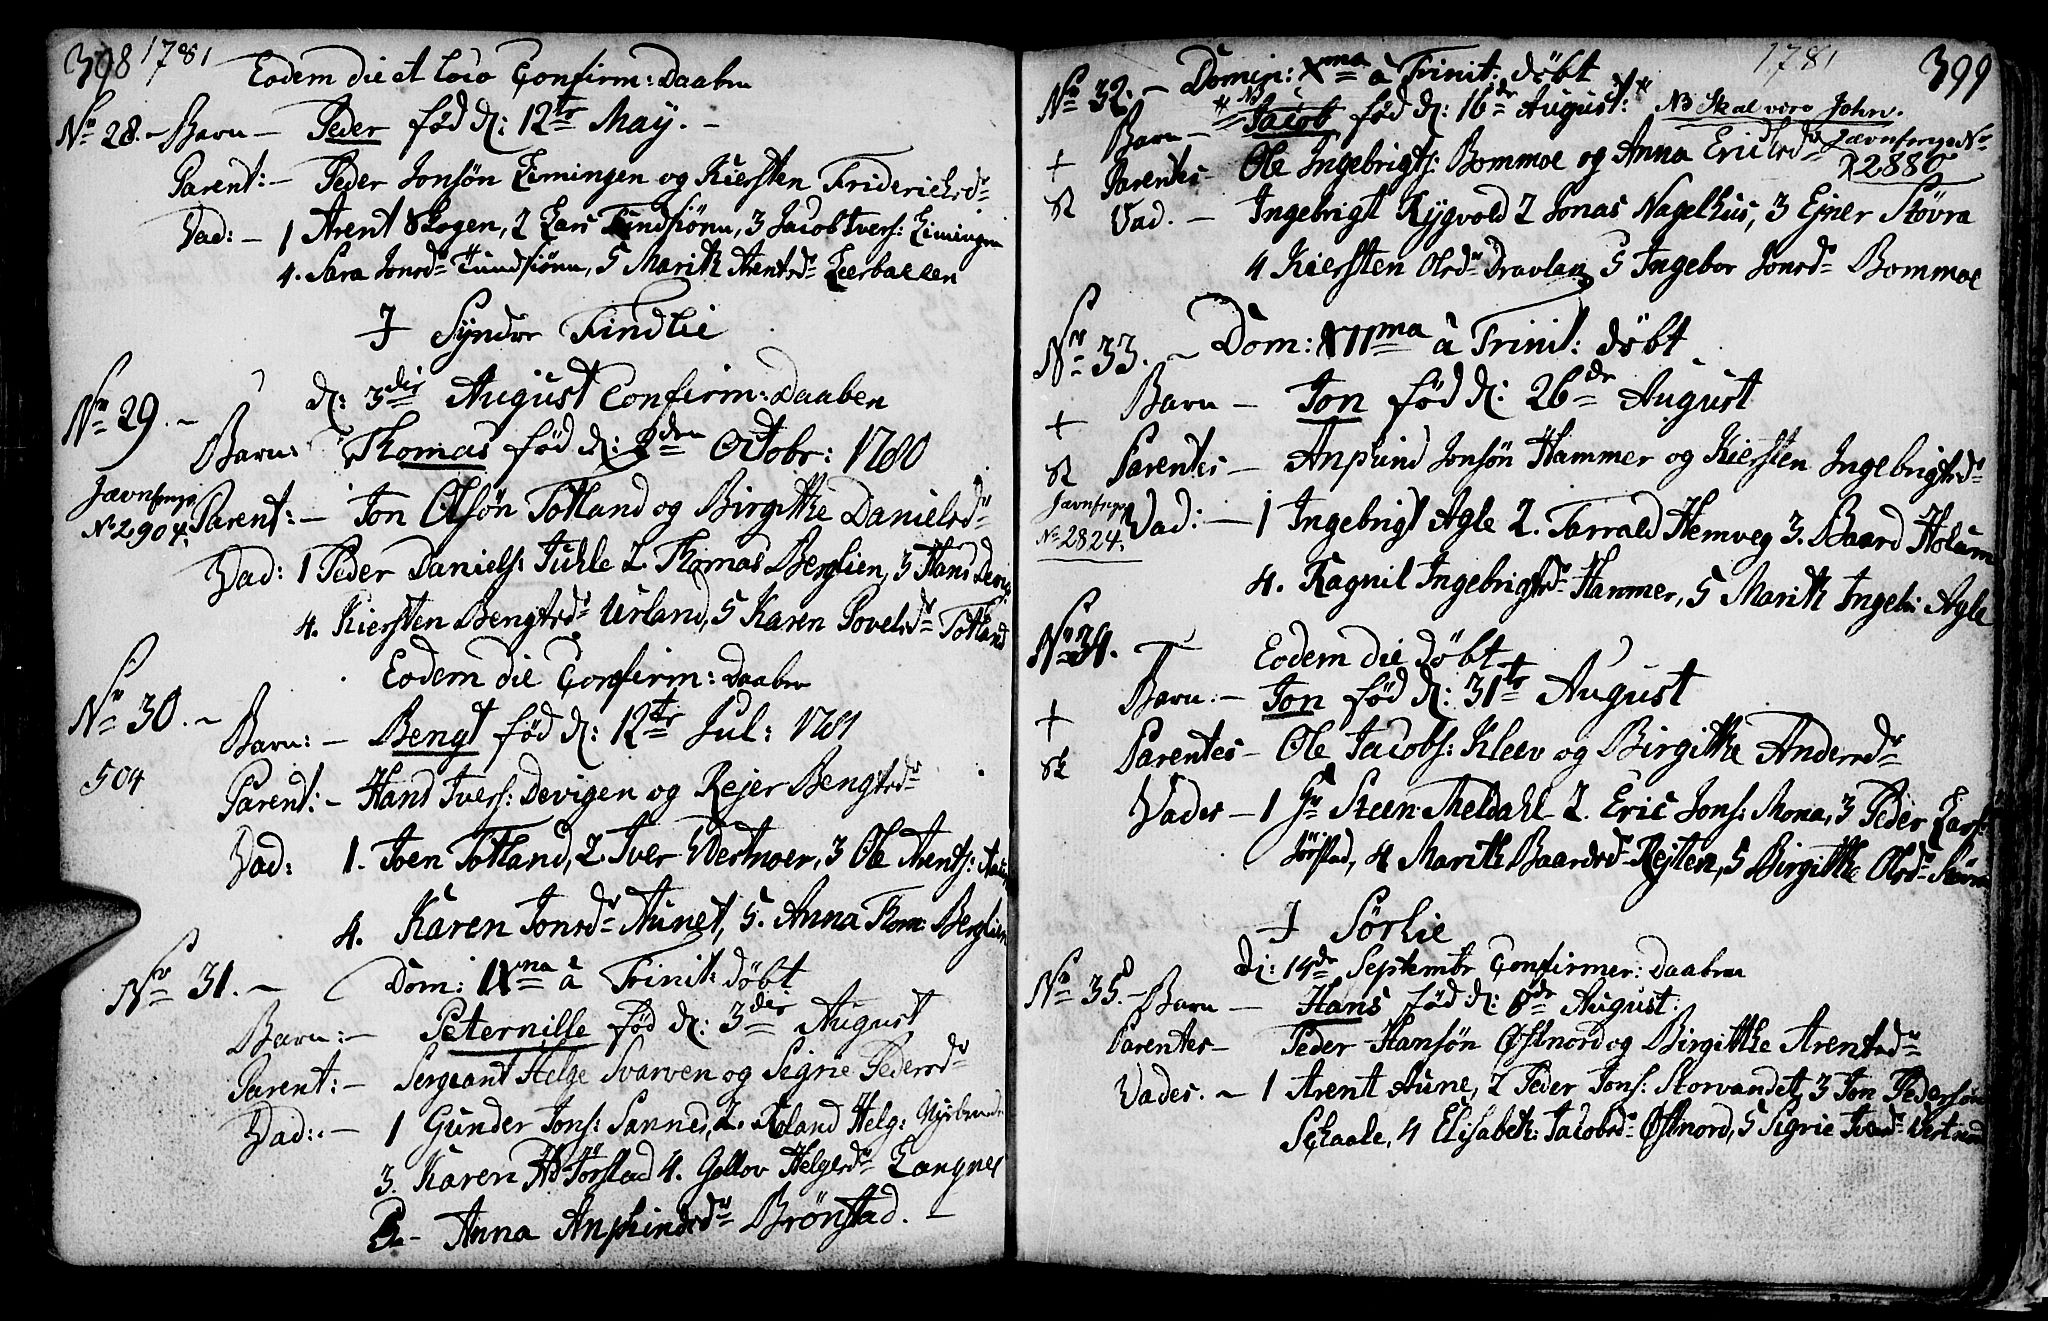 398 1781
Eodem die et loco Confirm: Daaben
No 28. – Barn – Peder fød d: 12te May. –
Parent: – Peder Jonsøn Limingen og Kiersten Friderichsd.
Vad: – 1 Arent Skogen, 2 Lars Tundsiønn, 3 Jacob Ivers: Limingen
4. Sara Jonsd. Tundsiønn, 5 Marith Arentsd. Leerbakken
I Syndre Findlie
No 29. – d: 3die August Confirm: Daaben
Barn: Thomas fød d: 2den Octobr: 1780
Jævnfør
No 2904. Parent: – Jon Olsøn Totland og Birgitthe Danielsd.
Vad: 1 Peder Daniels: Juhle 2 Thomas Berglien, 3 Hans Devig
4. Kiersten Bengtsd. Urland, 5 Karen Povelsd. Totland
Eodem die Confirm: Daaben
No 30. –
Barn: – Bengt fød d: 12te Jul: 1781
504 Parent: – Hans Ivers: Devigen og Rejer Bengtsd.
Vad: 1. Joen Totland, 2 Iver Westnoer, 3 Ole Arents:
4. Karen Jonsd. Aunet, 5. Anna Thom: Berglien
No 31. – Dom: IXna à Trinit: døbt
Barn: – Peternille fød d: 3die August
Parent: – Sergeant Helge Svarven og Signe Pedersd.
Vad: – 1 Gunder Jons: Sannes, 2. Roland Helg:
3. Karen Hs Jørstad 4. Gollov Helgesd. Langnes
5 – Anna Anphindsd. Brønstad. –
1781 399
No 32. – Domin: Xma à Trinit: døbt
Barn – NB Jacob fød d: 16de August: NB Skal være John.
Parentes Ole Ingebrigts: Bommoe og Anna Erichsd. Jævnføre No 2880
Vad. – Ingebrigt Rygvold 2 Jonas Nagelhus, 3 Ejner Støvra
4 Kiersten Olsd. Dravlan 5 Ingebor Jonsd. Bommoe
No 33. – Dom: XIIma à Trinit: døbt
Barn – Jon fød d: 26de August
Parentes – Anphind Jonsøn Hammer og Kiersten Ingebrigtsd.
Jævnfør
No 2824. Vad: – 1 Ingebrigt Agle 2. Tarrald Hemveg 3. Baard Holum
4. Ragnil Ingebrigtsd. Hammer, 5 Marith Ingeb: Agle
No 34. Eodem die døbt
Barn. – Jon fød d: 31te August
Parentes – Ole Jacobs: Kleev og Birgitthe Andersd.
Vades – 1 Hr Steen Meldahl 2. Eric Jons: Mona, 3 Peder Lars:
Jørstad, 4 Marith Baardsd. Rejten, 5 Birgitthe Olsd.
I Sørlie
d: 14de Septembr Confirmer: Daaben
No 35. – Barn – Hans fød d: 8de August:
Parentes – Peder Hansøn Østnord og Birgitthe Arentsd.
Vades. – 1 Arent Aune, 2 Peder Jons: Storvandet, 3 Jon Pedersøn
Schaale, 4 Elisabeth: Jacobsd. Østnord, 5 Sigrie Iversd. Vestnord